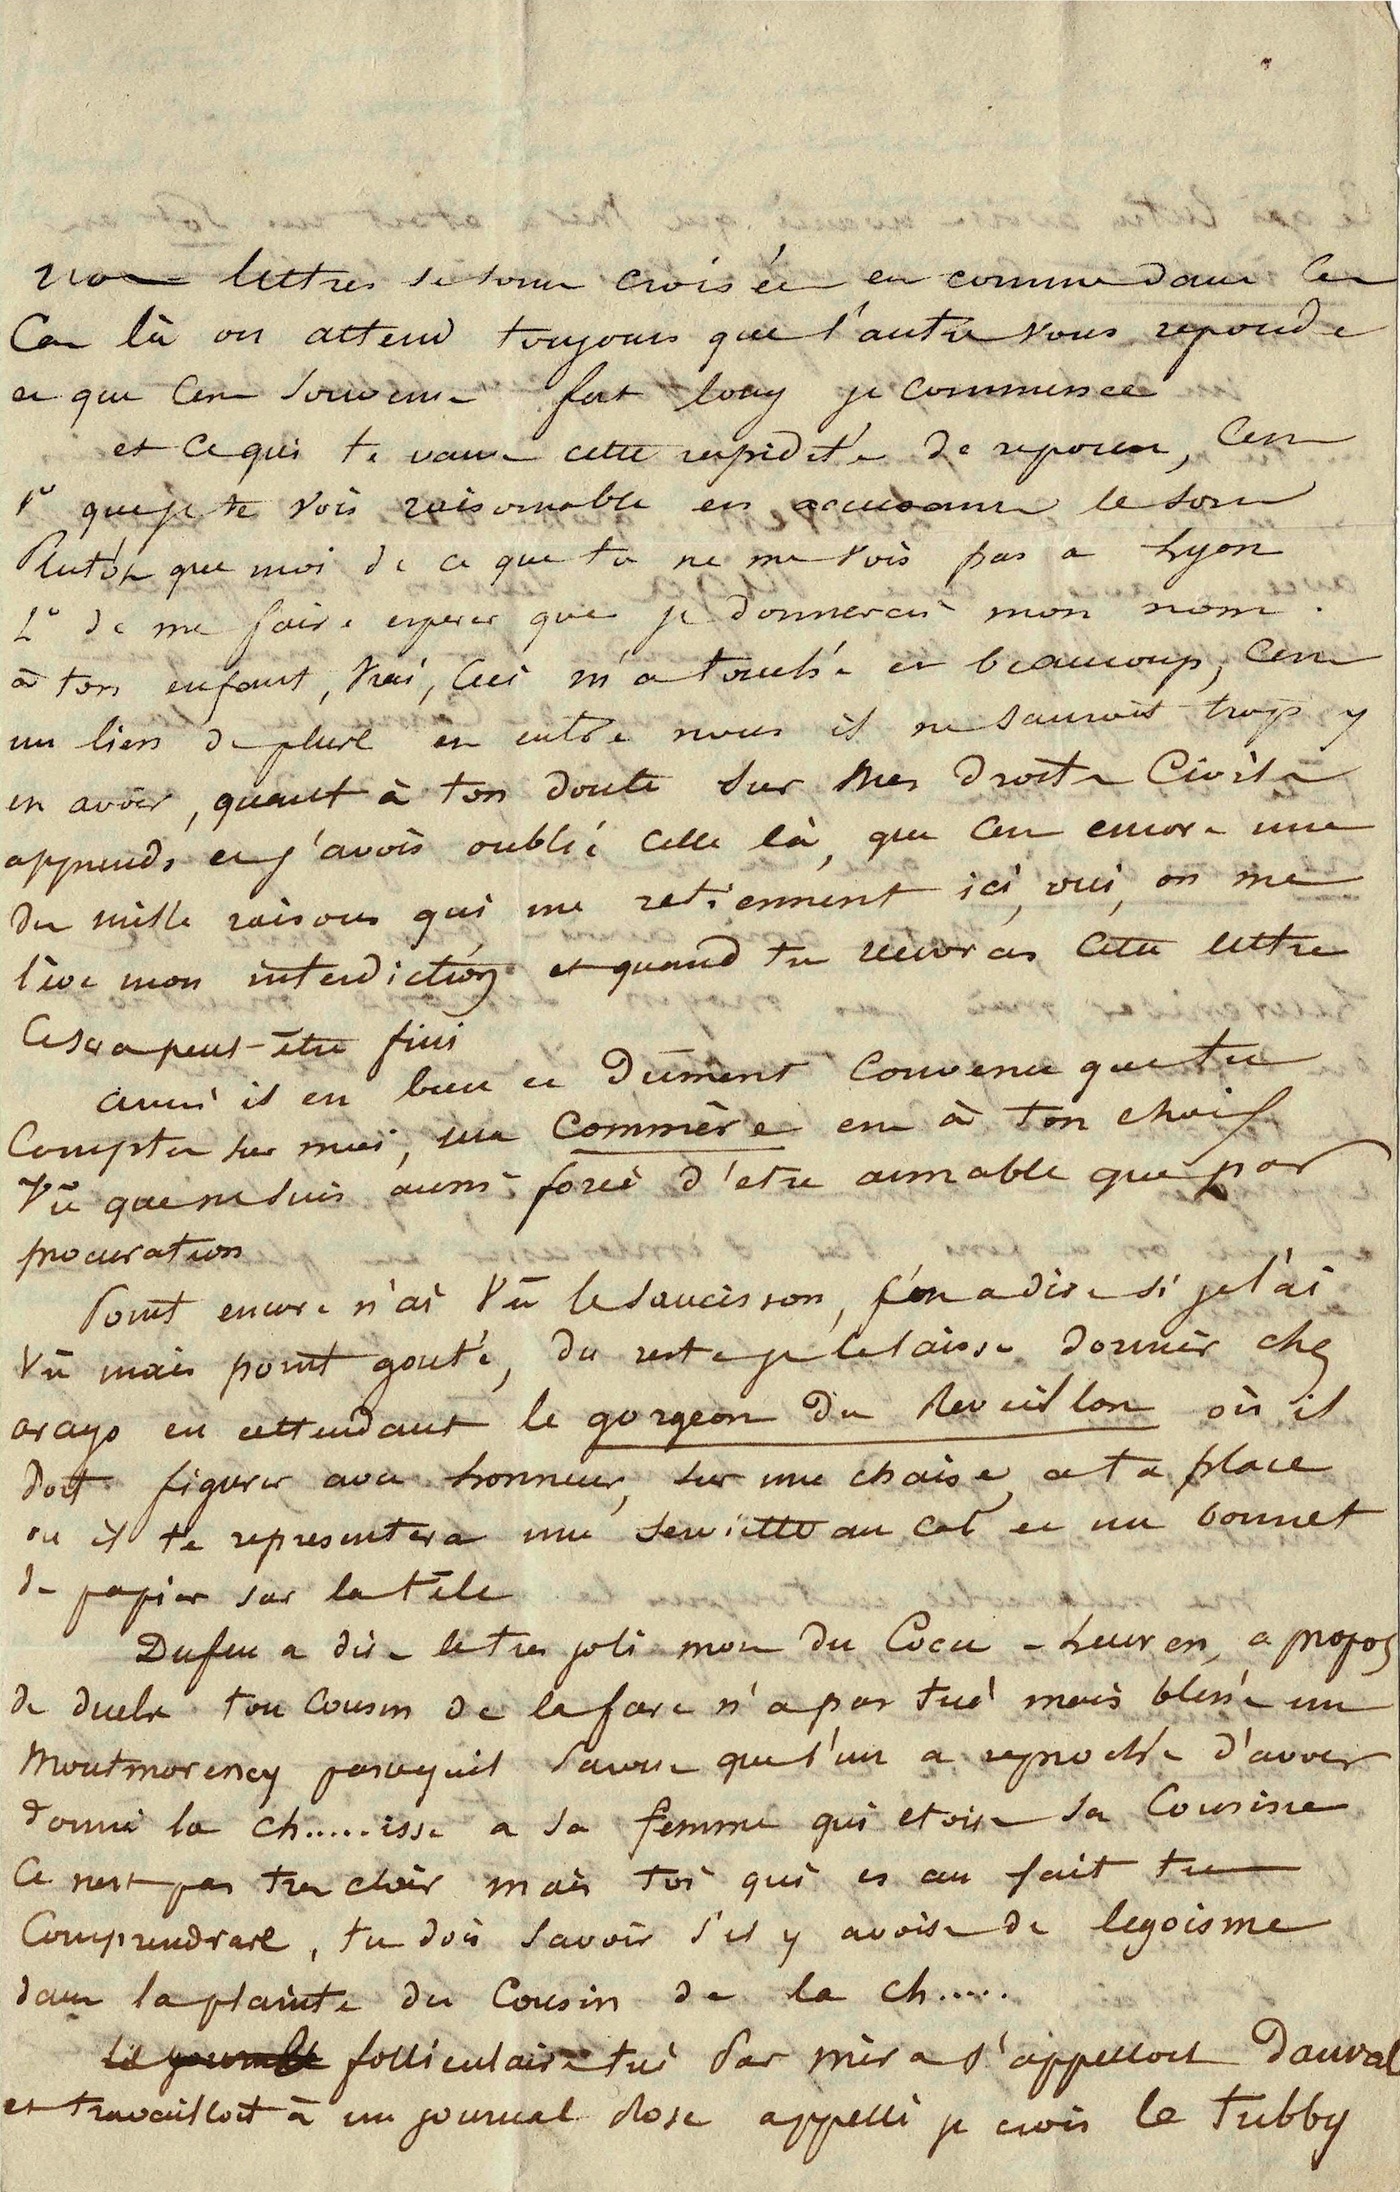 nos lettres se sont croisées et comme dans ces
Cas là on attend toujours que l'autre vous reponde
et que C'est souvent fort long je commence
et ce qui te vaut cette rapidité de reponse, C'est
1° que je te vois raisonnable en accusant le sort
Plutôt que moi de ce que tu ne me vois pas a Lyon
2° de me faire esperer que je donnerai mon nom
à ton enfant, Vrai, Ceci m'a touché et beaucoup, C'est
un lien de plus et entre nous il ne sauroit trop y
en avoir, quant à ton doute sur mes droits Civils
apprends et j'avois oublié celle là, que C'est encore une
des mille raisons qui me retiennent ici, oui, on me
lève mon interdiction et quand tu recevras Cette lettre
Ce sera peut-être fini
ainsi il est bien et Dûment Convenu que tu
Comptes sur moi, ma Commère est à ton choix
Vû que ne suis aussi forcé d'etre aimable que par
procuration
Point encore n'ai Vû le saucisson, c'est a dire si je l'ai
Vû mais point gouté, du reste je le laisse dormir chez
arago en attendant le gorgeon du Reveillon où il
doit figurer avec honneur, sur une chaise, a ta place
ou il te representera une serviette au col et un bonnet
de papier sur la tête
Dufeu a dit le tres joli mot du Cocu - , a propos
de duels ton Cousin de la fare n'a pas tué mais blessé un
Montmorency parcequil l'un a reproché d'avoir
donné la ch.....isse a sa femme qui etoit sa Cousine
Ce n'est pas tres clair mais toi qui es au fait tu
Comprendras, tu dois savoir s'il y avoit de legoisme
dans la plainte du Cousin de la ch.....
folliculaire tué Par mèra s'appelloit Dauval
et travailloit à un journal Rose appellé je crois le Tribby